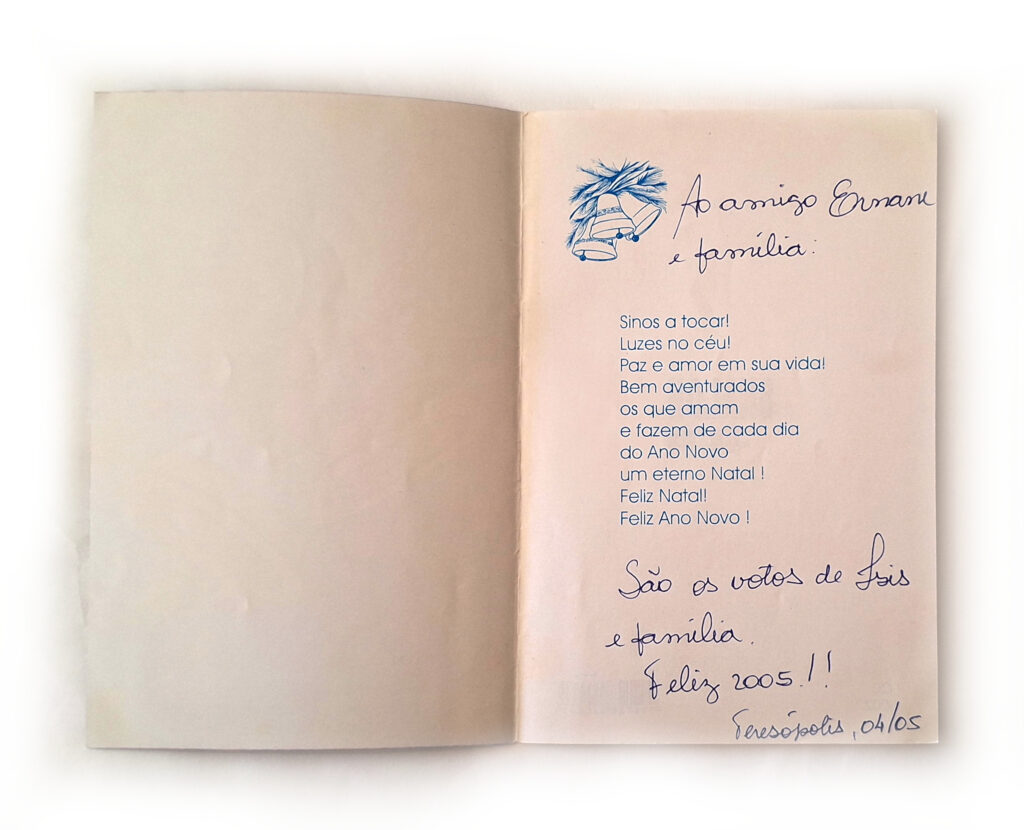 Ao amigo Ernane
e família:
Sinos a tocar!
Luzes no céu!
Paz e amor em sua vida!
Bem aventurados
os que amam
e fazem de cada dia
do Ano Novo
um eterno Natal !
Feliz Natal!
Feliz Ano Novo !
São os votos de Isis
e família.
Feliz 2005!!
Teresópolis, 04/05